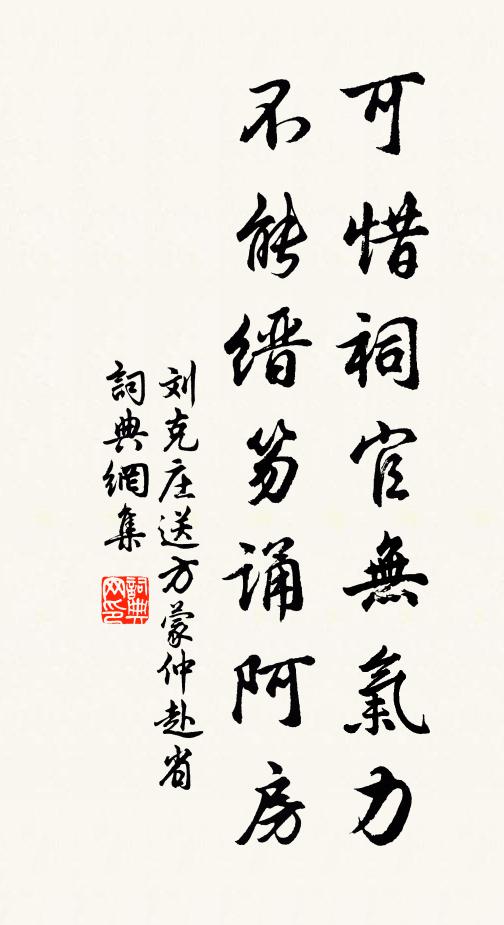 可惜祠官無氣力
不能缙笏誦阿房
刘克庄送方蒙仲赴省
詞典網集
詞典網印